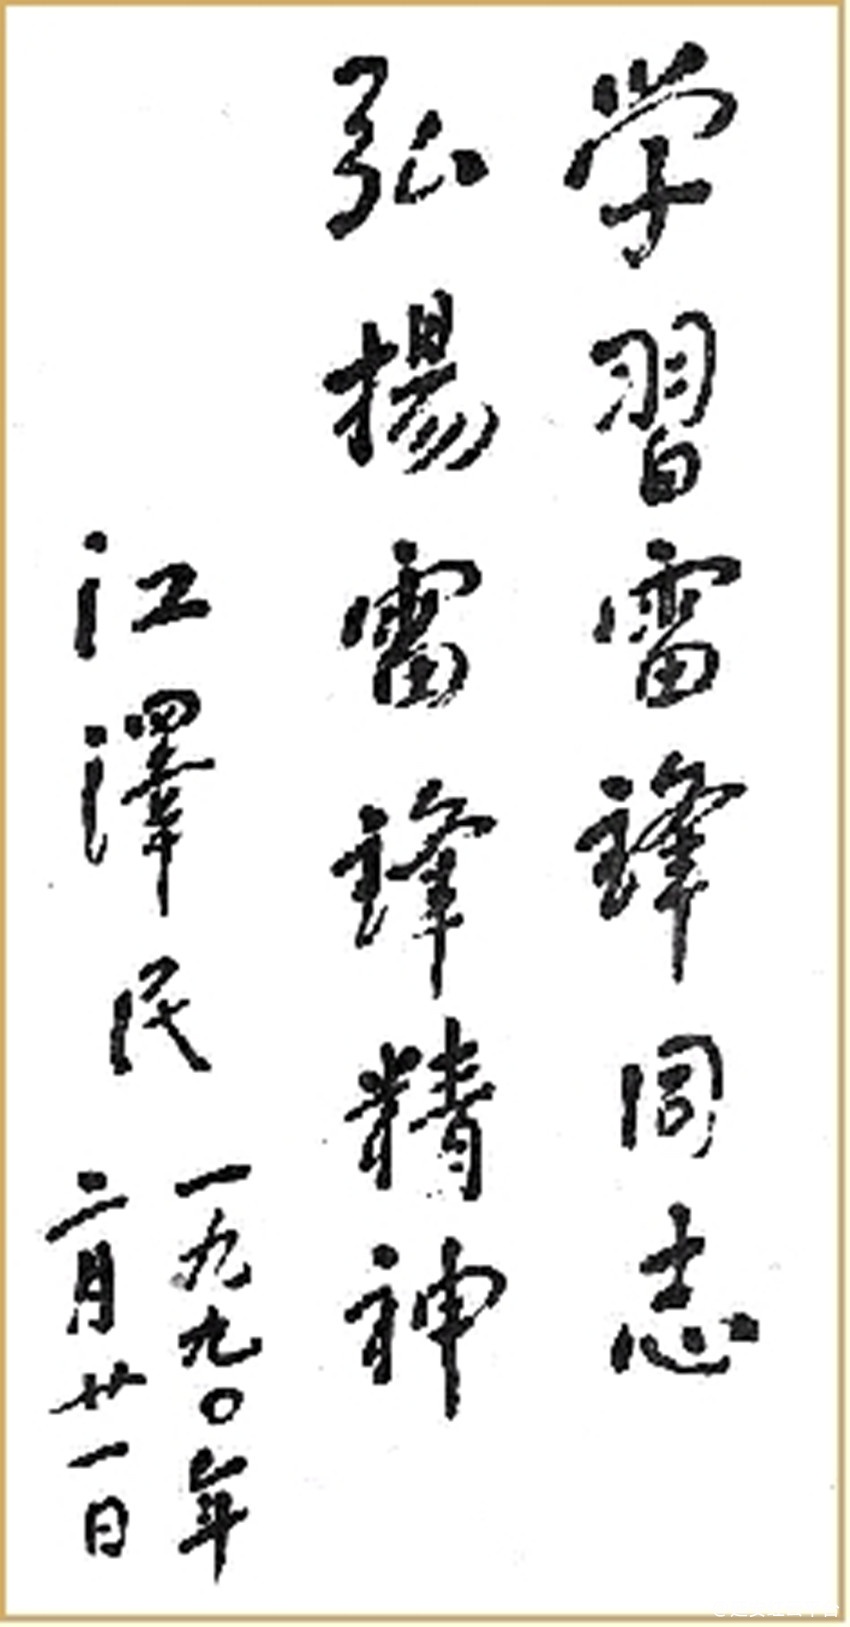 学習雷锋同志
弘揚雷鋒精神
江澤民
一九九〇年
二月廿一日